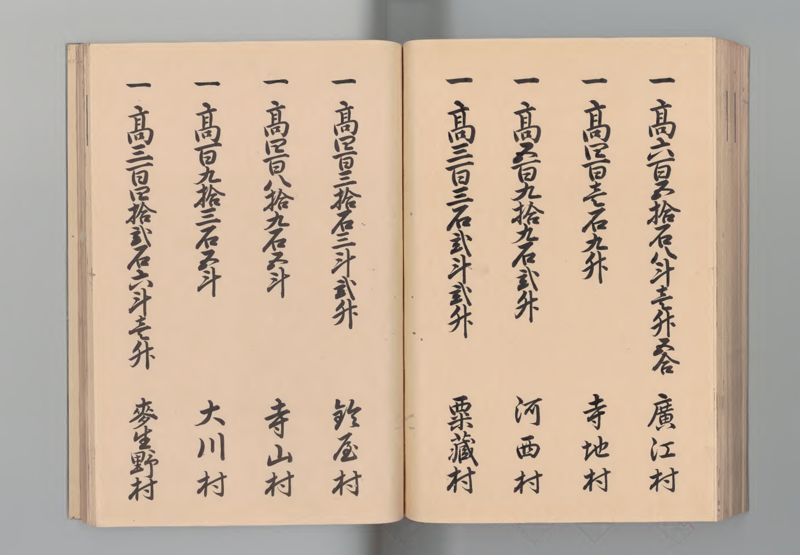 一 高六百五拾石八斗壱升五合 廣江村
一 高四百壱石九升 寺地村
一 高五百九拾九石弐升 河西村
一 高三百三石弐斗弐升 粟蔵村
一 高四百三拾石三斗弐升 鈴屋村
一 高四百八拾九石五斗 寺山村
一 高百九拾三石五斗 大川村
一 高三百四拾弐石六斗壱升 麥生野村